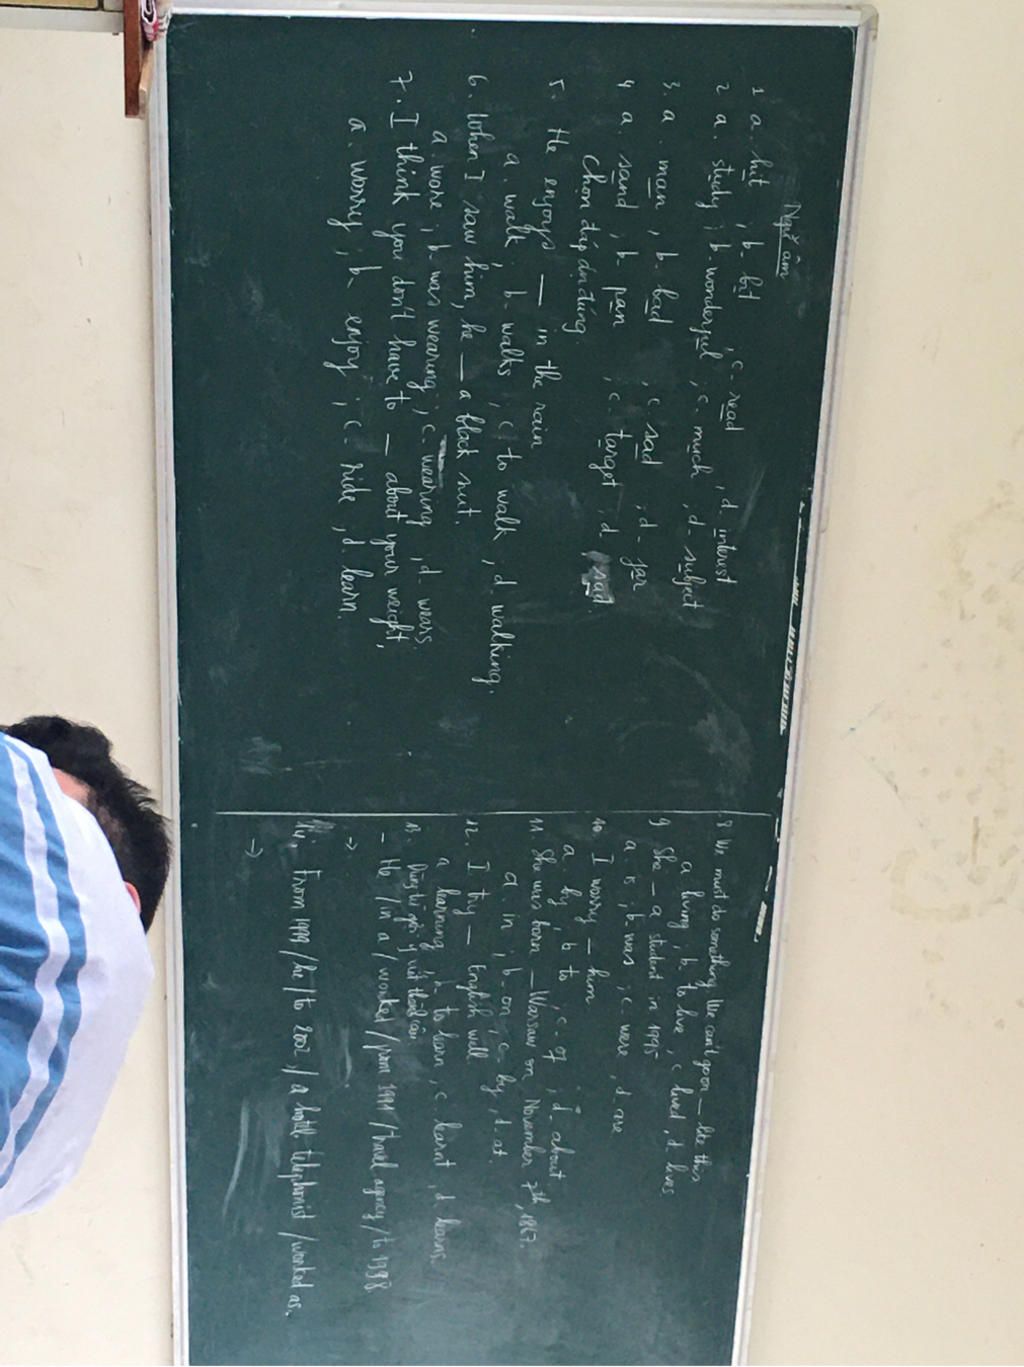 Ngữ âm
1 a. hit, b- bit, c- read, d. interest
2 a. study, b- wonderful, c. much, d- subject
3. a. man, b- bad, c. sad, d- far
4 a. sand, b. pan, c. target, d- sad
Chọn đáp án đúng.
5. He enjoys — in the rain
a. walk, b- walks, c- to walk, d. walking.
6. When I saw him, he — a black suit.
a. wore, b- was wearing, c- wearing, d- wears.
7. I think you don't have to — about your weight,
a. worry, b- enjoy, c- hide, d. learn.
8 We must do something. We can't go on — like this
a living, b- to live, c lived, d lives
9 She — a student in 1995
a. is, b- was, c- were, d are
10. I worry — him
a. by, b to, c- of, d- about
11. She was born — Warsaw on November 7th, 1867.
a. in, b- on, c- by, d- at.
12. I try — English well
a learning, b to learn, c. learnt, d learns.
13. Dùng từ gợi ý viết thành câu
- He / in a / worked / from 1991 / travel agency / to 1998
→
14. From 1999 / he / to 2002 / a hotel telephonist / worked as.
→